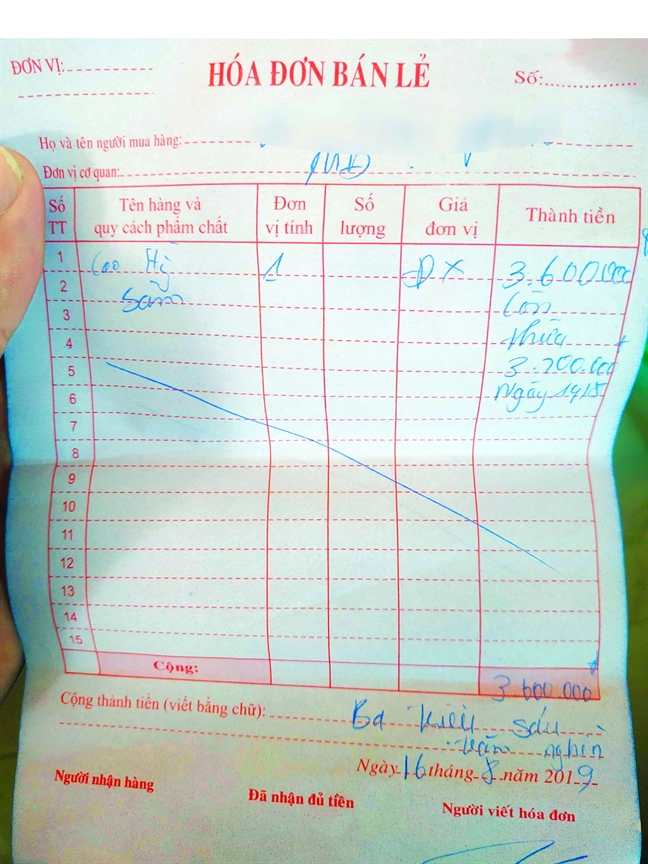 ĐƠN VỊ:
HÓA ĐƠN BÁN LẺ
Số:
Họ và tên người mua hàng:
Đơn vị cơ quan:
Số TT
Tên hàng và quy cách phẩm chất
Đơn vị tính
Số lượng
Giá đơn vị
Thành tiền
1 Cao Hy 1 Đ X 3.600.000
2 Sâm Còn
3
4 thừa
5 3.700.000
6 Ngày
7
8
9
10
11
12
13
14
15
Cộng: 3.600.000
Cộng thành tiền (viết bằng chữ): Ba triệu sáu
trăm nghìn
Ngày 16 tháng 8 năm 2019
Người nhận hàng
Đã nhận đủ tiền
Người viết hóa đơn